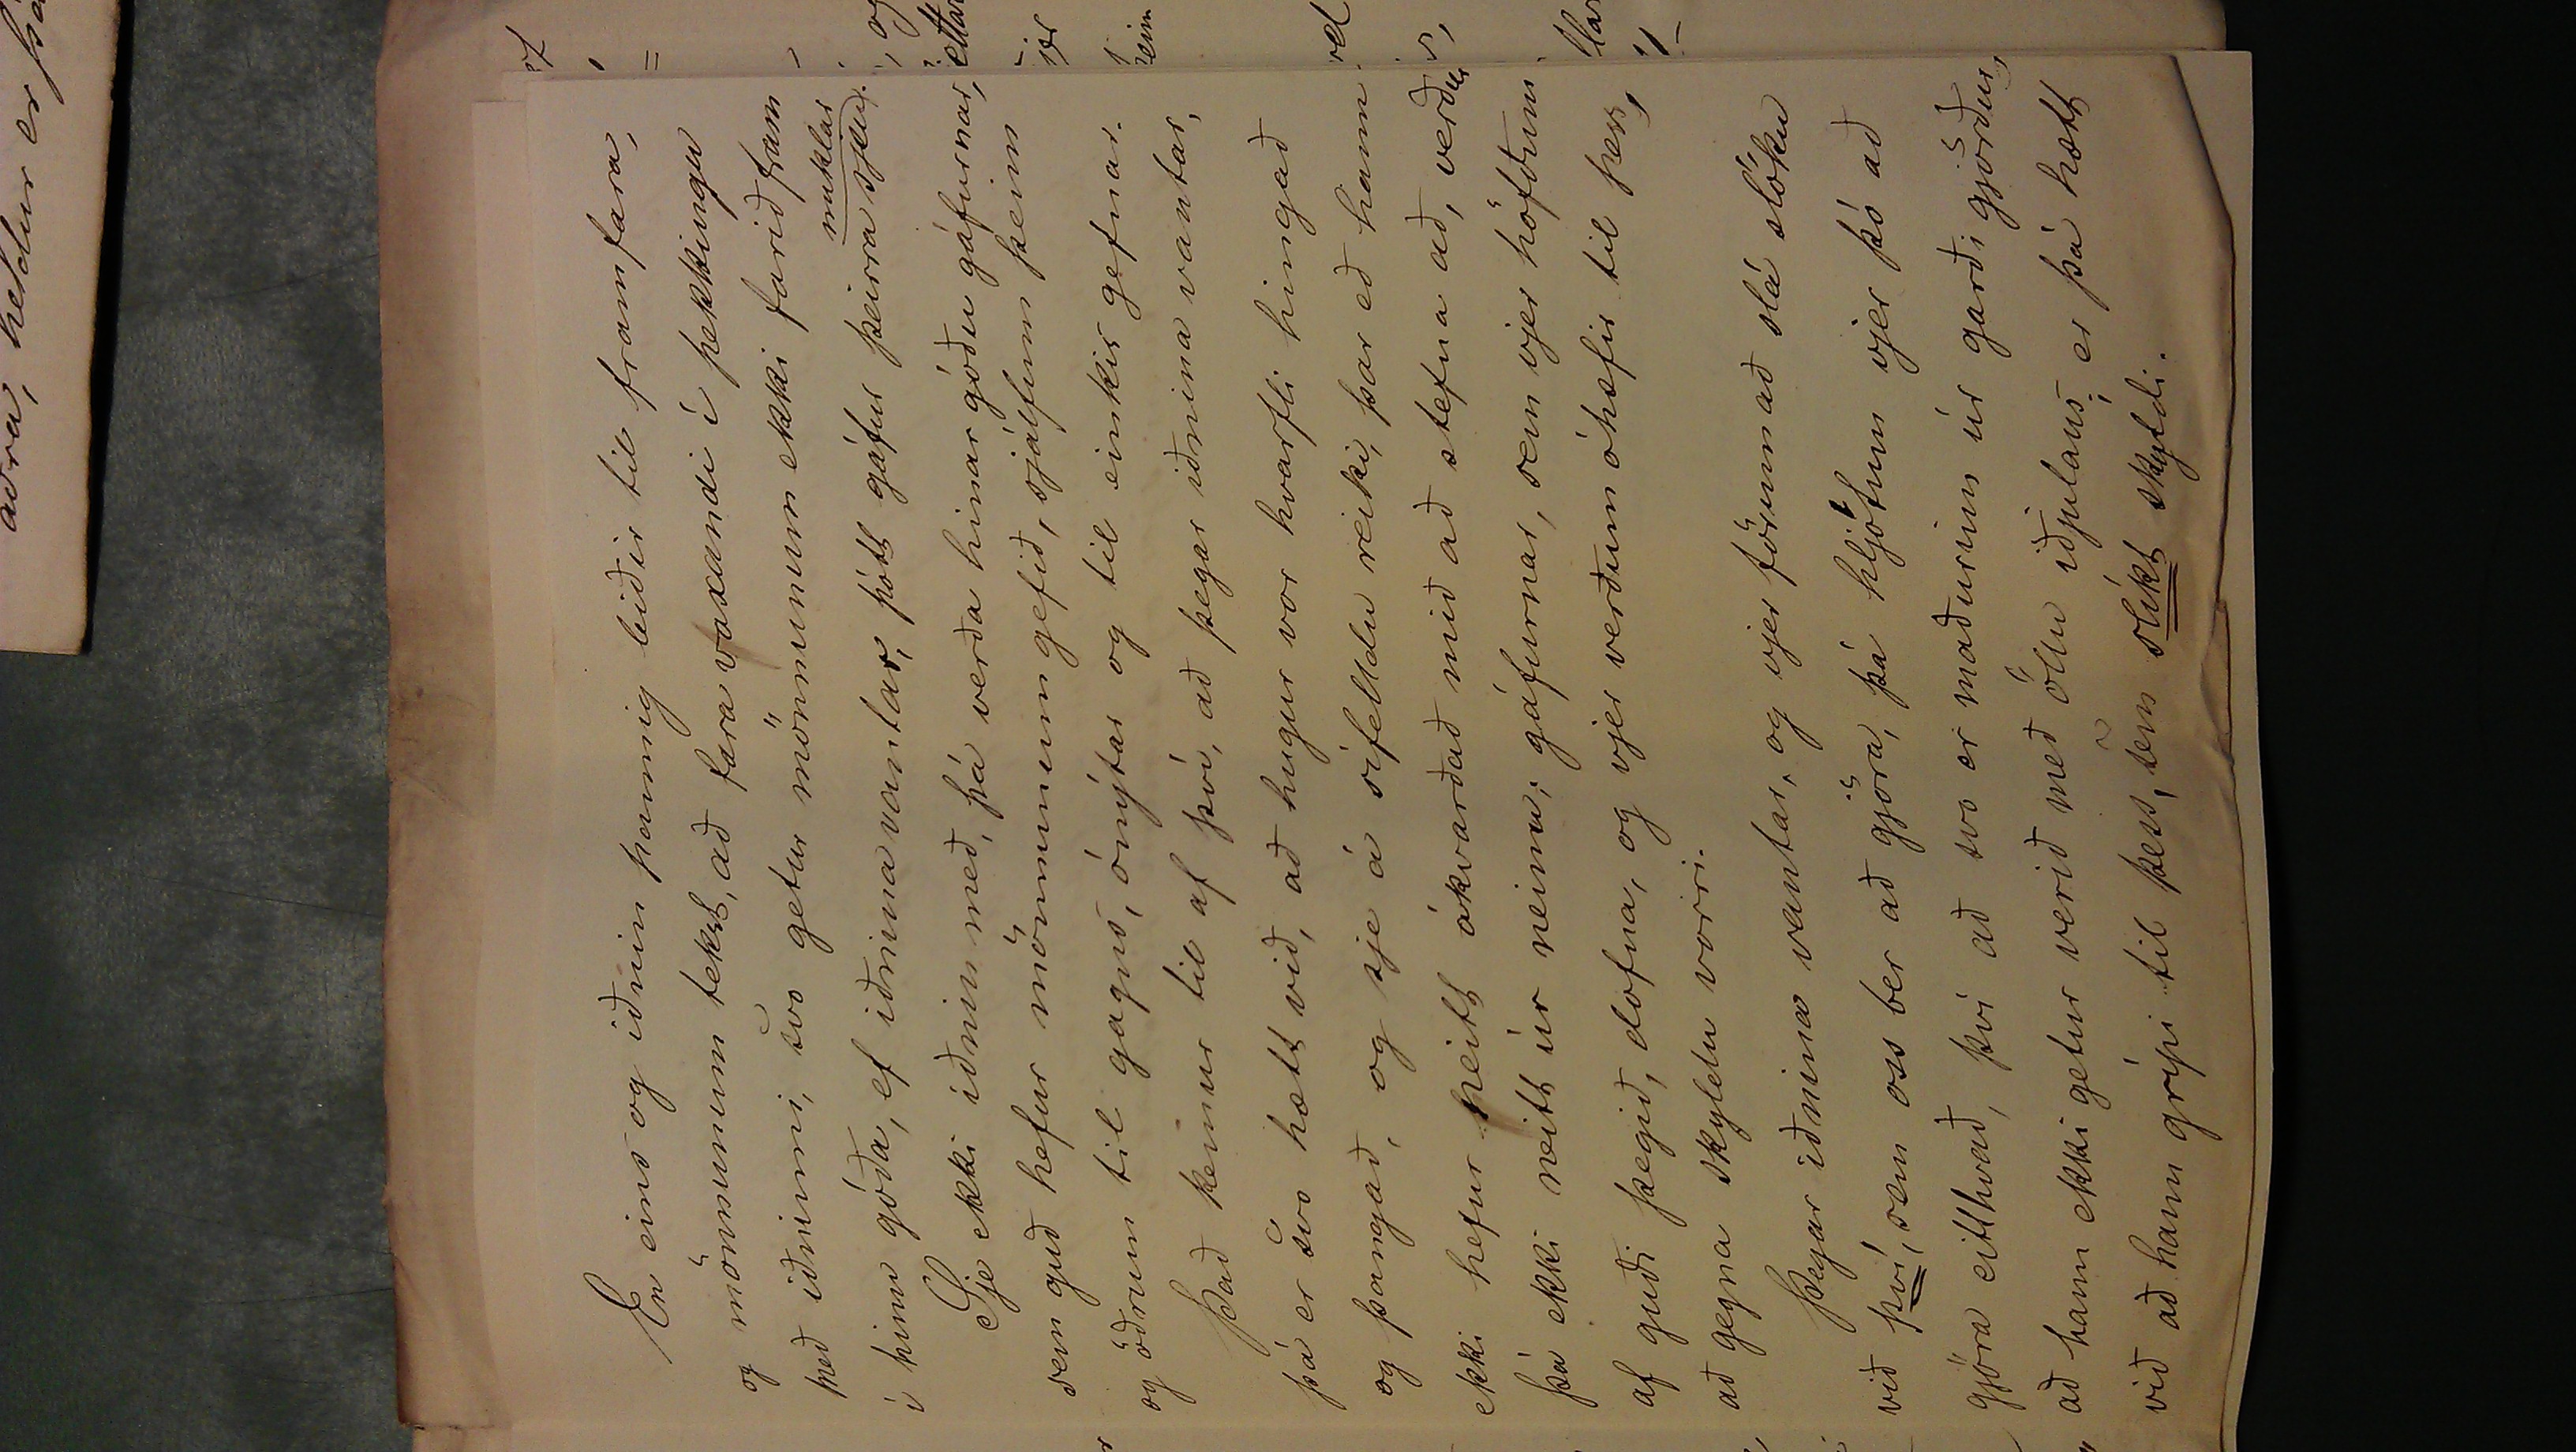 aðra, heldur er þá
En eins og iðnin þannig leiðir til framfara,
og mönnunum tekst, að fara vaxandi í þekkingu
með iðninni, svo getur mönnunum ekki farið fram
í hinu góða, ef iðnina vantar, þótt gáfur þeirra sjeu
miklar.
Sje ekki iðnin með, þá verða hinar góðu gáfurnar,
sem guð hefur mönnunum gefið, sjálfum þeim
og öðrum til gagns, ónýtar og til einkis gefnar.
Það kemur til af því, að þegar iðnina vantar,
þá er svo hætt við, að hugur vor hvarfli hingað
og þangað, og sje á sífelldu reiki, þar eð hann
ekki hefur neitt ákvarðað mið að stefna að, verður
þá ekki neitt úr neinu; gáfurnar, sem vjer höfðum
af guði þegið, dofna, og vjer verðum óhæfir til þess,
að gegna skyldu vorri.
Þegar iðnina vantar, og vjer förum að slá slöku
við því, sem oss ber að gjöra, þá hljótum vjer þó að
gjöra eitthvað, því að svo er maðurinn úr garði gjörður,
að hann ekki getur verið með öllu iðjulaus; er þá hætt
við að hann grípi til þess, sem slíkt skyldi.